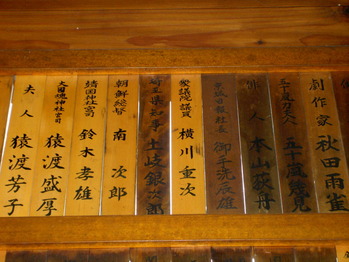 劇作家 秋田雨雀
人 本山荻舟
京城日報社長 御手洗辰雄
衆議院議員 横川重次
埼玉県知事 土岐銀次郎
朝鮮総督 南次郎
靖国神社宮司 鈴木孝雄
大国魂神社宮司 猿渡盛厚
夫人 猿渡芳子